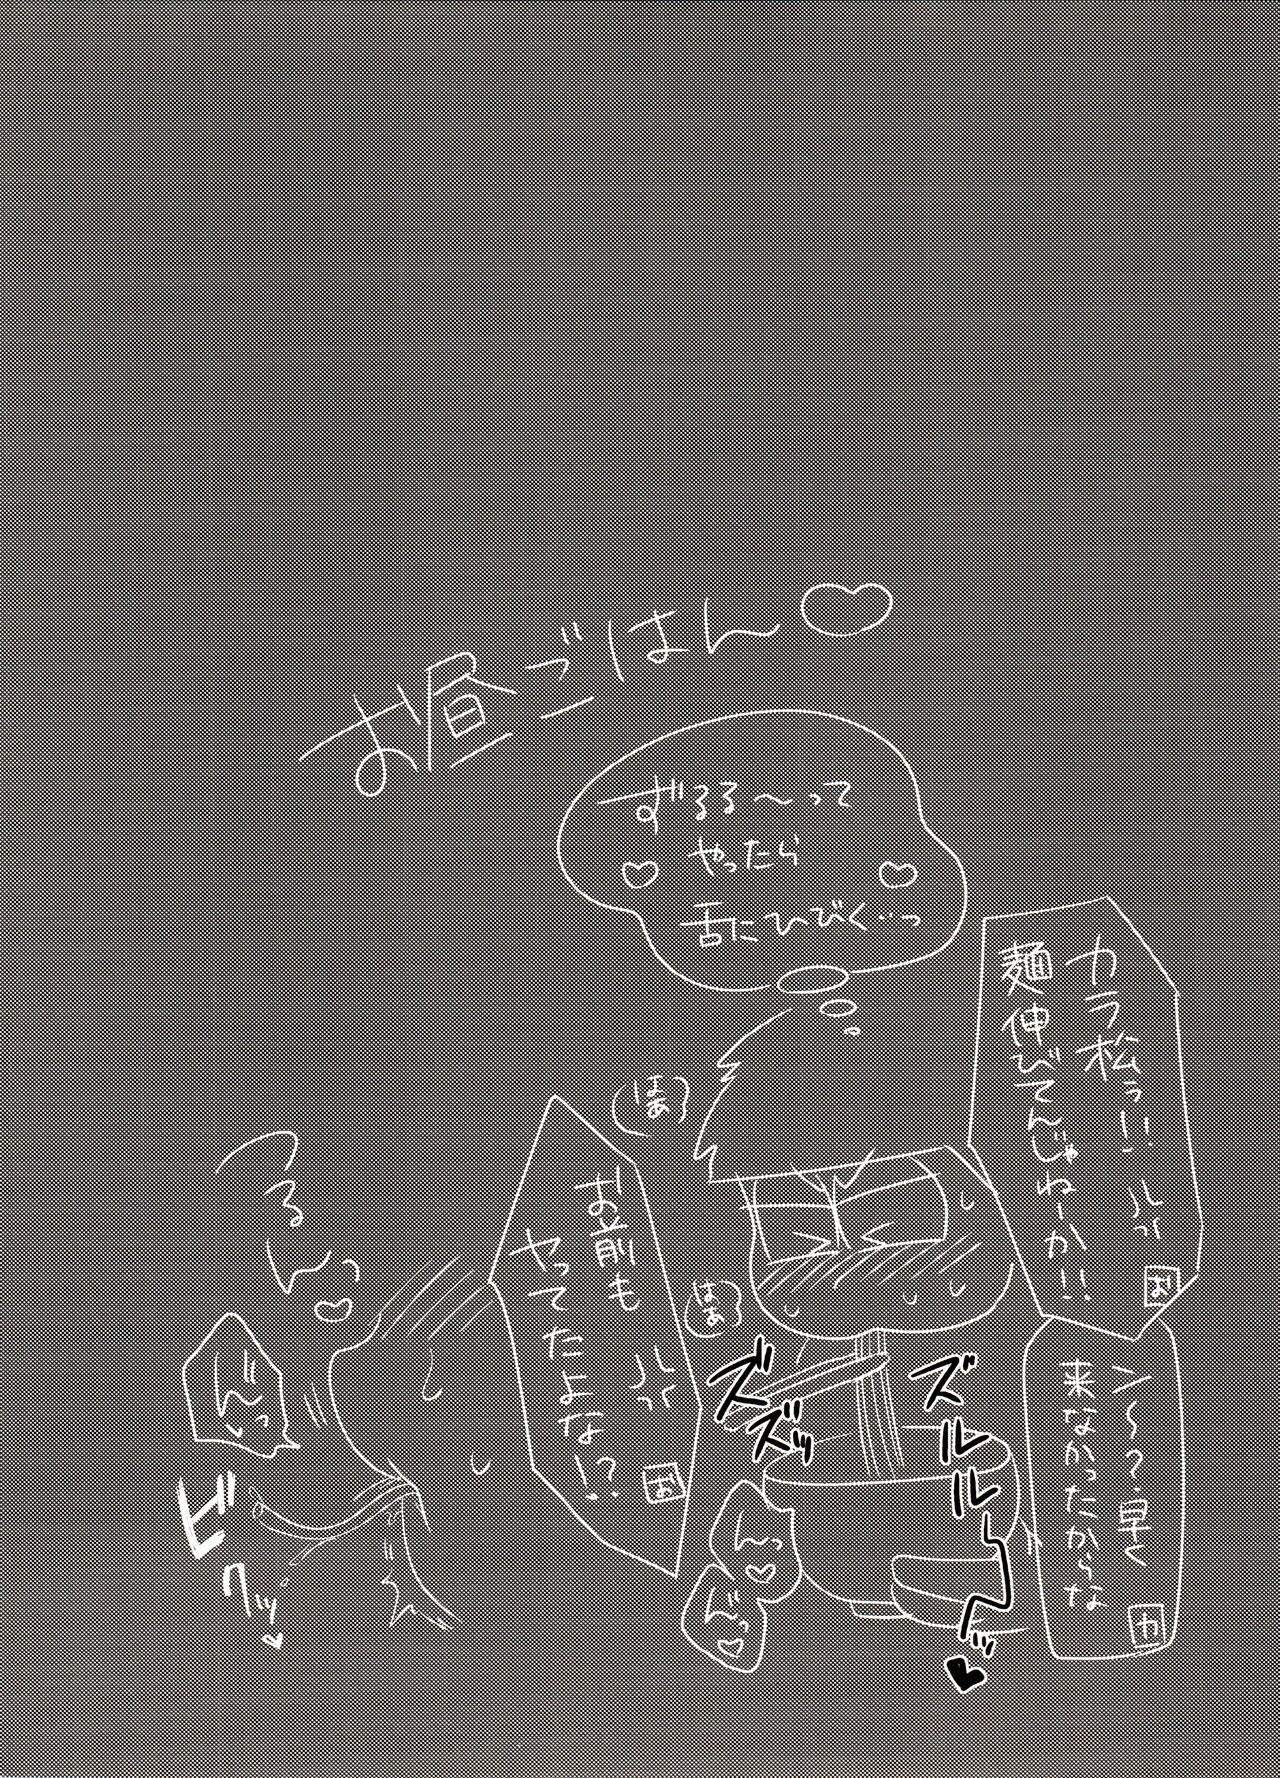 お昼ごはん♡
ずるる〜って
やったら
舌にひびく…っ
カラ松ぅ!!
麺伸びてんじゃねーか!!
お
ン〜?早く
来なかったからな
カ
はぁっ
お前も
やってたよな!?
お
はぁっ
ズズズッ
ズルルル〜ッ
ん〜っ♡
んんっ♡
んんっ
るんっ♡
ビクッ♡